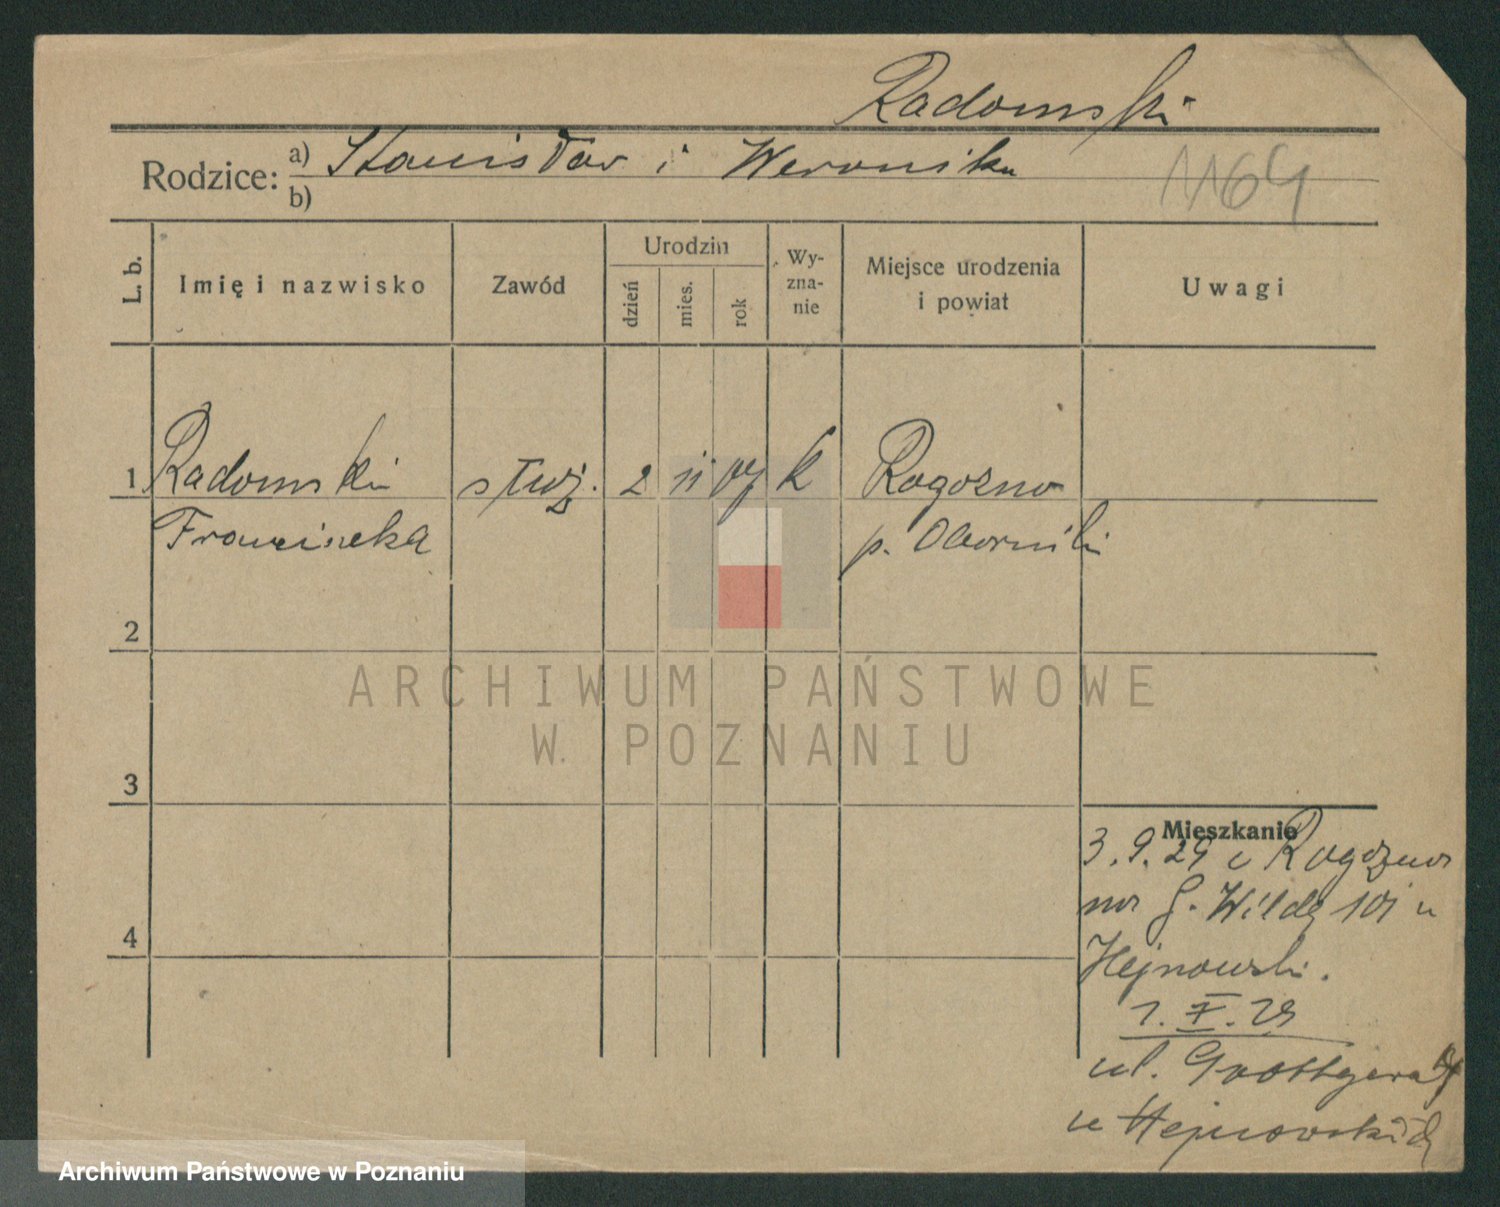 Radomski
Rodzice: a) Stanisław i Weronika
b)
1164
L. b.
Imię i nazwisko
Zawód
Urodzin
dzień
mies.
rok
Wy-
zna-
nie
Miejsce urodzenia
i powiat
Uwagi
1 Radomski służ. 2 11 k Rogoźno
Franciszka p. Oborniki
2
3
4
Mieszkanie
3.9.29 z Rogoźna
na G. Wildę 101 u
Hejnowski.
1. X. 29
ul. Grottgera
u Hejnowskich
ARCHIWUM PAŃSTWOWE
W POZNANIU
Archiwum Państwowe w Poznaniu